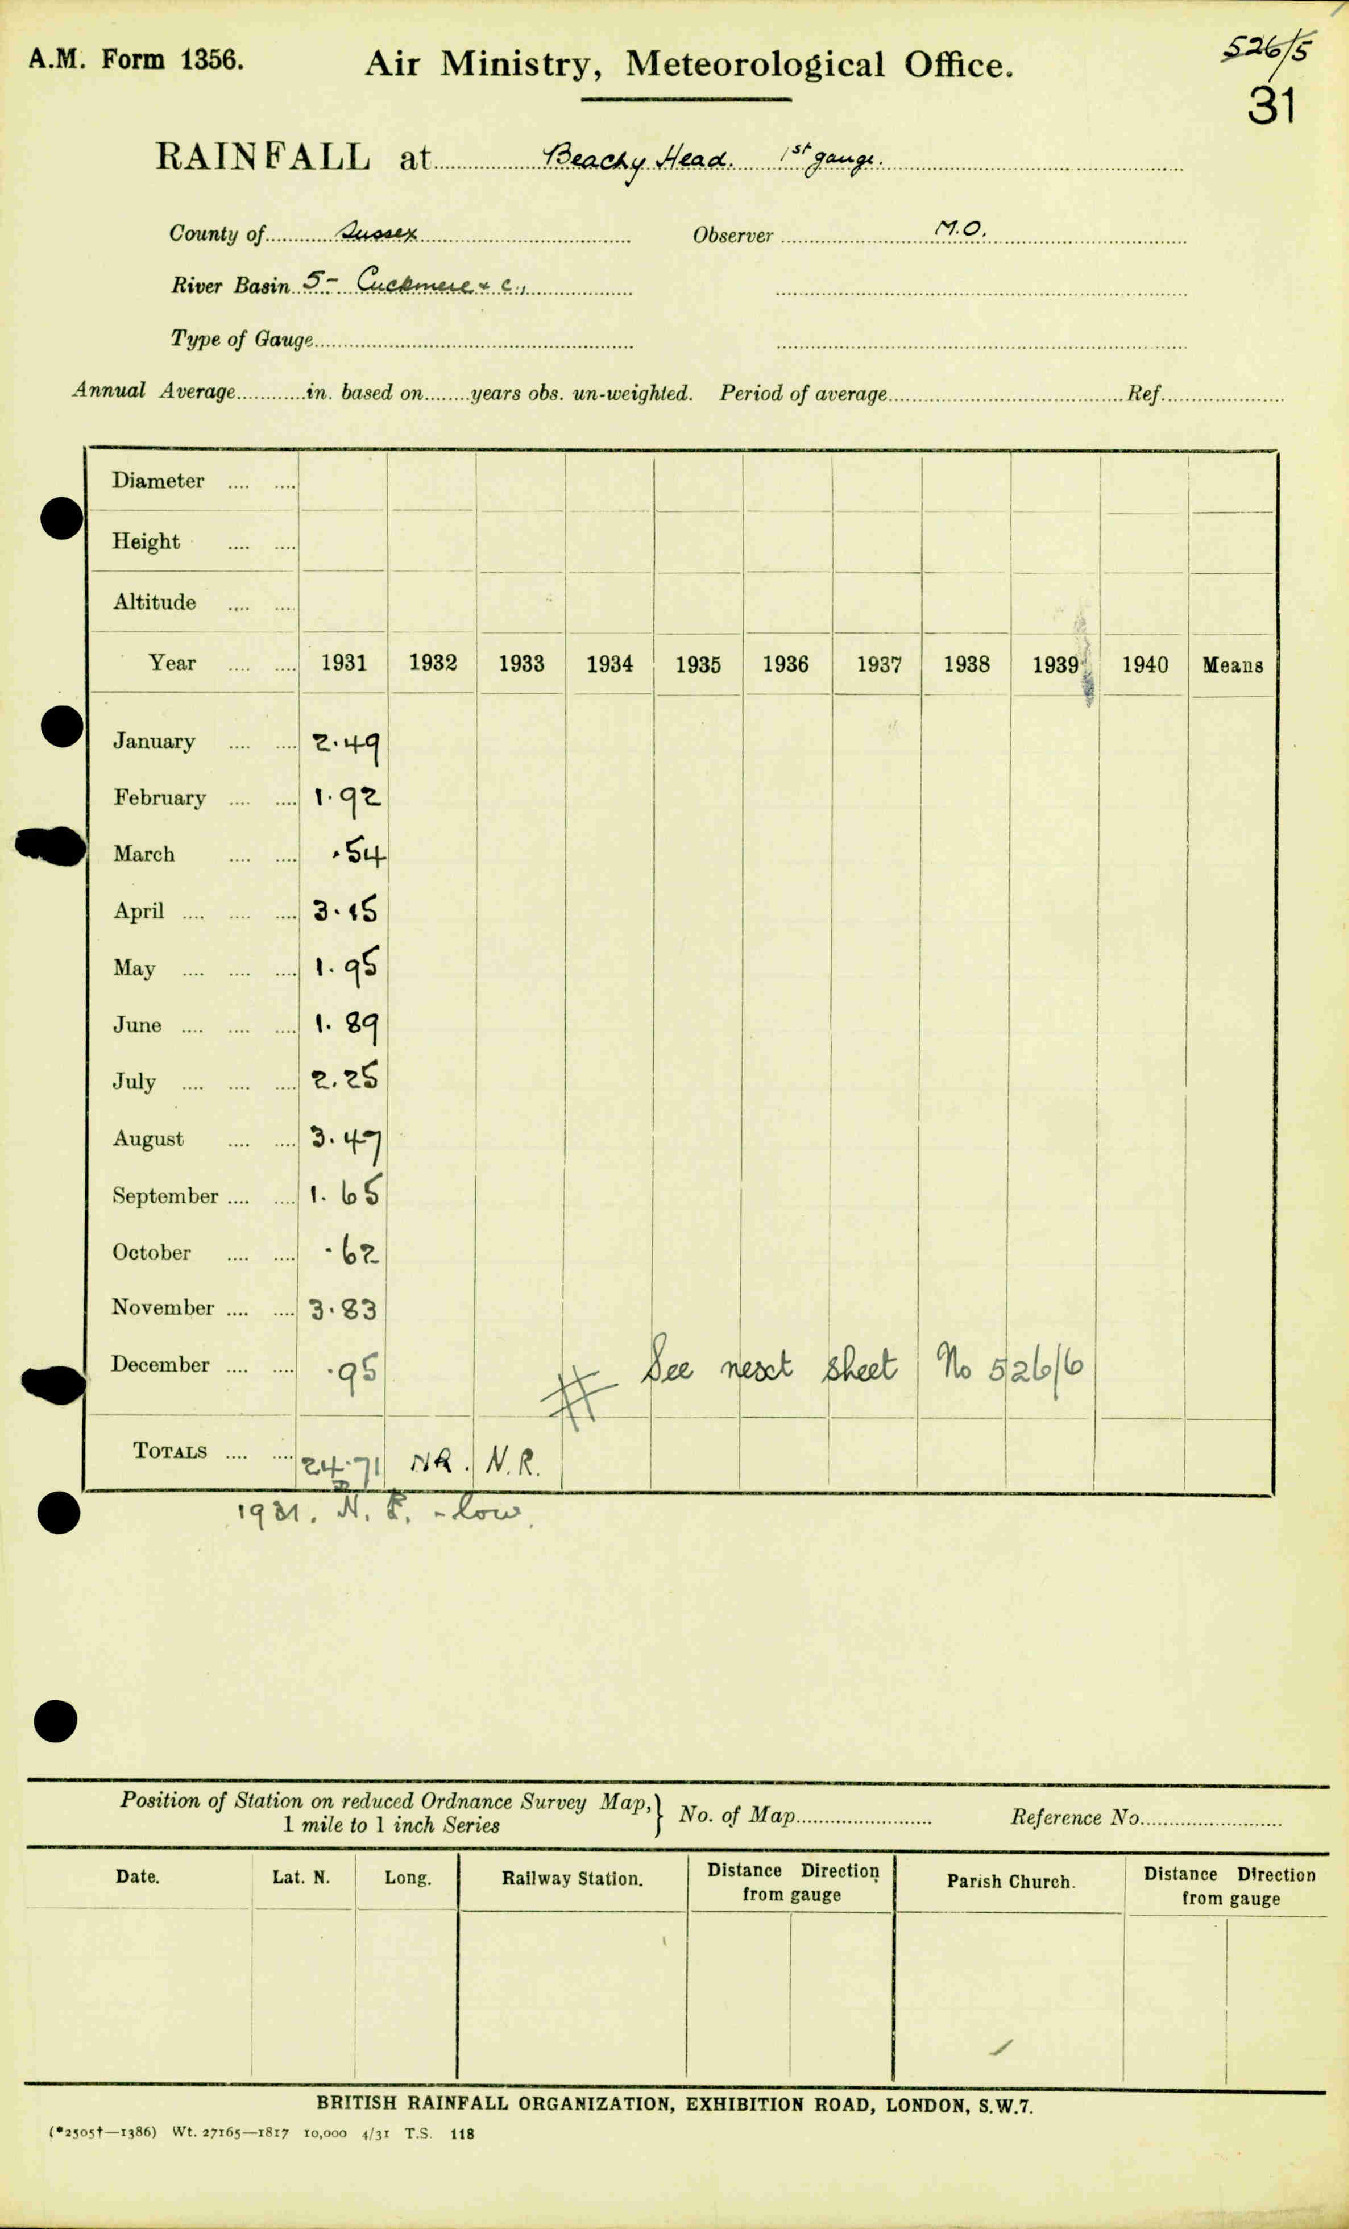 A.M. Form 1356.
Air Ministry, Meteorological Office.
526/5
31
RAINFALL at Beachy Head. 1st gauge.
County of Sussex Observer M.O.
River Basin 5- Cuckmere & c.,
Type of Gauge
Annual Average in. based on years obs. un-weighted. Period of average Ref.
Diameter
Height
Altitude
Year 1931 1932 1933 1934 1935 1936 1937 1938 1939 1940 Means
January 2.49
February 1.92
March .54
April 3.15
May 1.95
June 1.89
July 2.25
August 3.47
September 1.65
October .62
November 3.83
December .95 See next sheet No 526/6
TOTALS 24.71 NR. N.R.
1931. N. - low.
Position of Station on reduced Ordnance Survey Map, No. of Map Reference No.
1 mile to 1 inch Series
Date. Lat. N. Long. Railway Station. Distance Direction Parish Church. Distance Direction
from gauge from gauge
BRITISH RAINFALL ORGANIZATION, EXHIBITION ROAD, LONDON, S.W.7.
(*2505†—1386) Wt. 27165—1817 10,000 4/31 T.S. 118